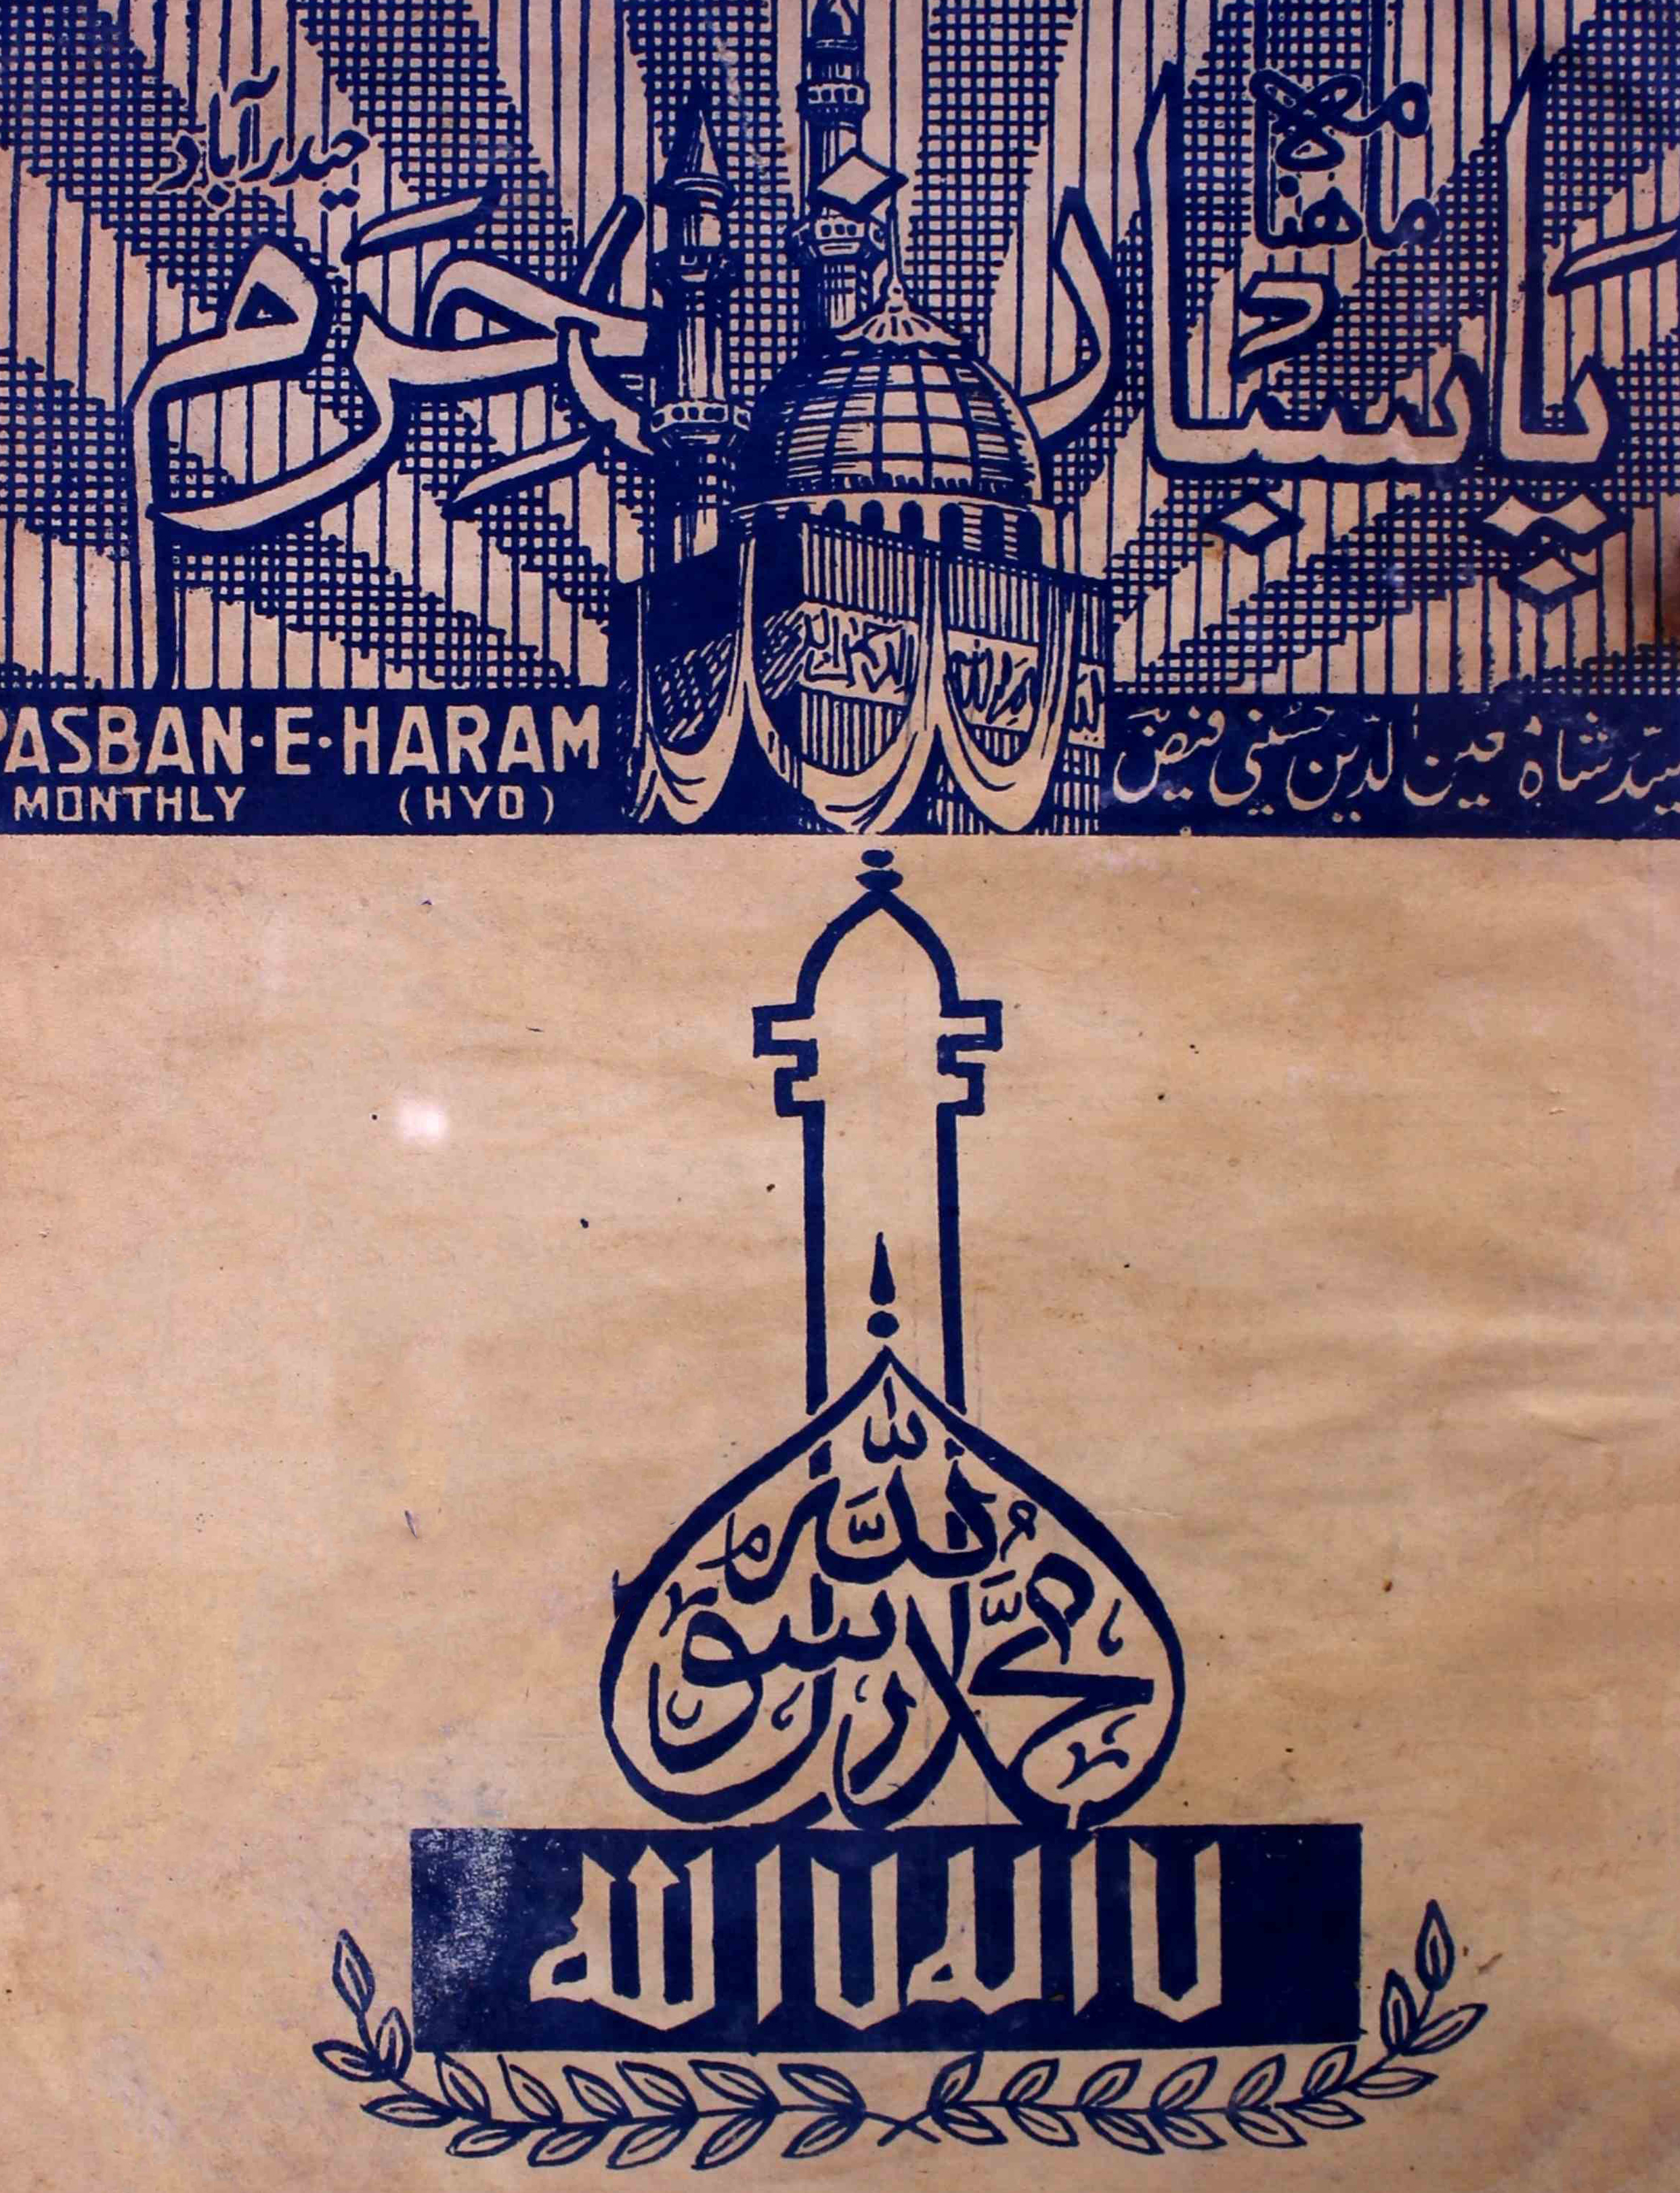 ماهنامه
پاسبانِ حَرَم
حیدرآباد
PASBAN·E·HARAM
MONTHLY (HYD)
سیّد شاہ معین الدین حسینی فیضؔ
محمّد رسول اللّٰه
لا اله الا الله